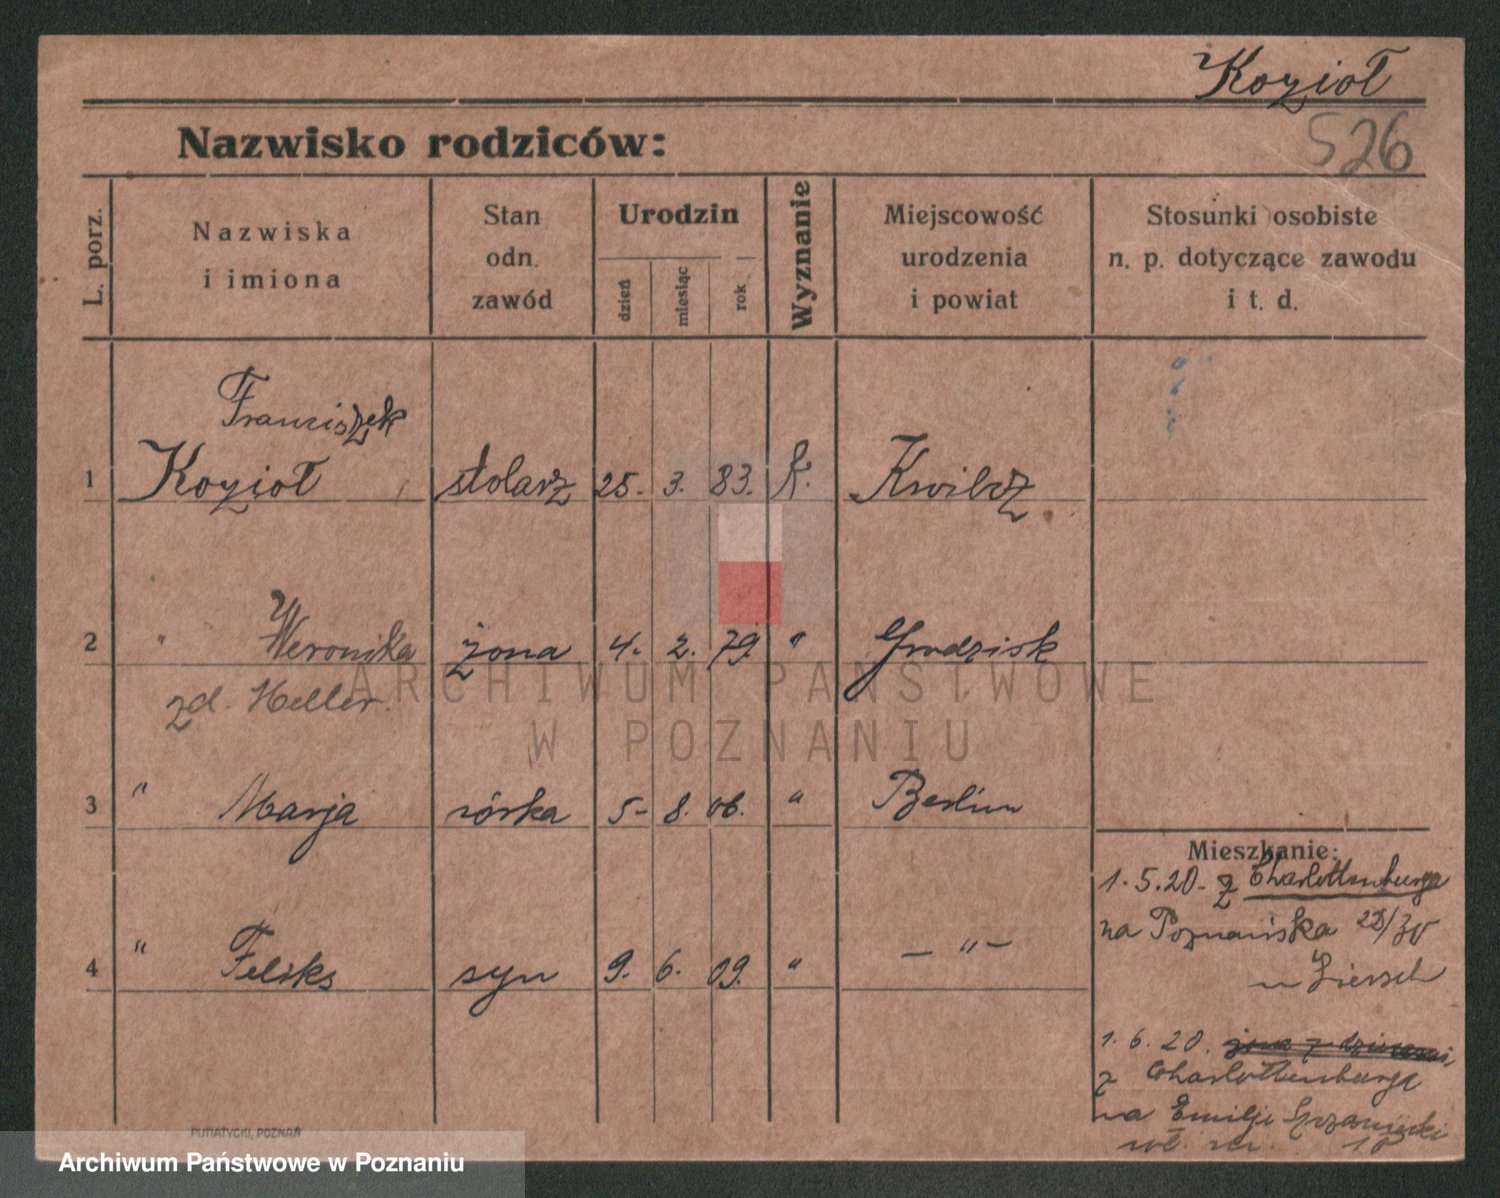 Kozioł
526
Nazwisko rodziców:
L. porz.
Nazwiska
i imiona
Stan
odn.
zawód
Urodzin
dzień
miesiąc
rok
Wyznanie
Miejscowość
urodzenia
i powiat
Stosunki osobiste
n. p. dotyczące zawodu
i t. d.
Franciszek
1 Kozioł stolarz 25. 3. 83. k. Kwilcz
2 " Weronika żona 4. 2. 79. " Grodzisk
zd. Heller.
3 " Marja córka 5- 8. 06. " Berlin
4 " Feliks syn 9. 6. 09. " — " —
Mieszkanie:
1.5.20. z Charlottenburga
na Poznańska
1.6.20. żona z dziećmi
z Charlottenburga
na Emilji Sczanieckiej
PUTIATYCKI, POZNAŃ
ARCHIWUM PAŃSTWOWE
W POZNANIU
Archiwum Państwowe w Poznaniu